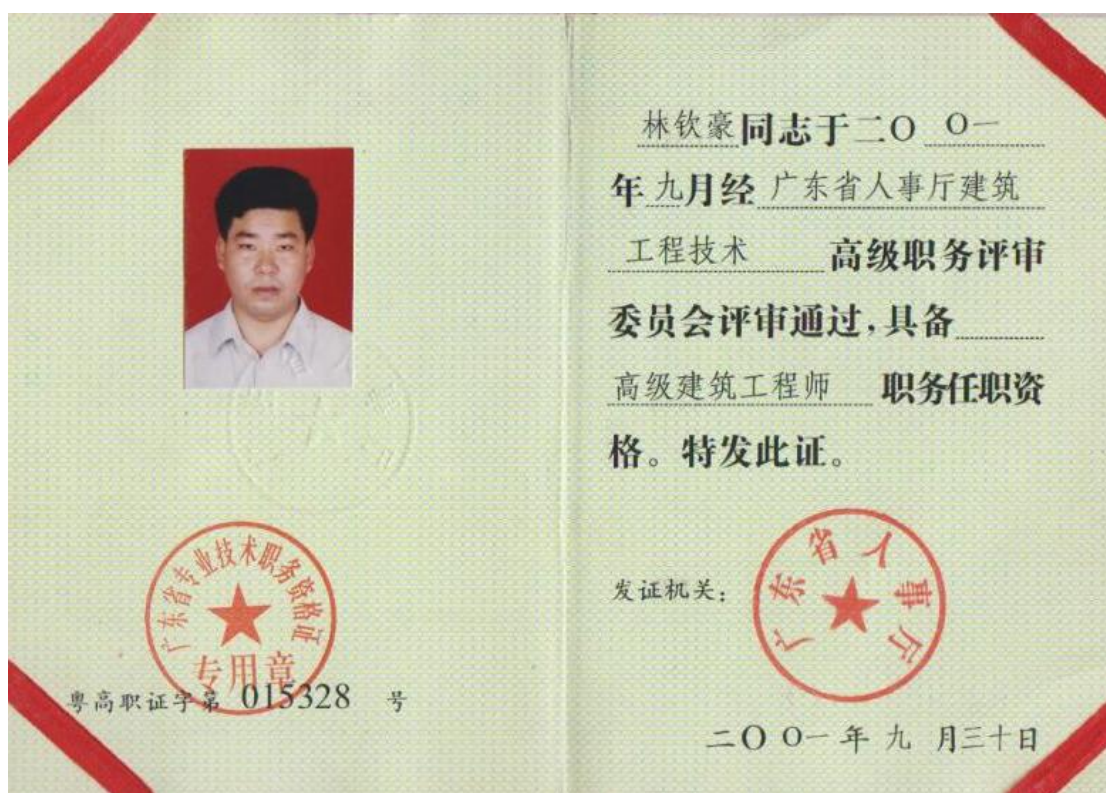 广东省专业技术职务资格证
专用章
粤高职证字第 015328 号
林钦豪同志于二〇 〇一
年九月经广东省人事厅建筑
工程技术 高级职务评审
委员会评审通过，具备
高级建筑工程师 职务任职资
格。特发此证。
发证机关：
广东省人事厅
二〇〇一年九月三十日